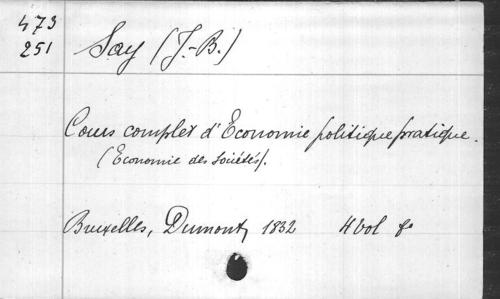 473
251
Say (J.-B.)
Cours complet d'Economie politique pratique.
(Economie des Sociétés).
Bruxelles, Dumont, 1832 4 Vol 8º